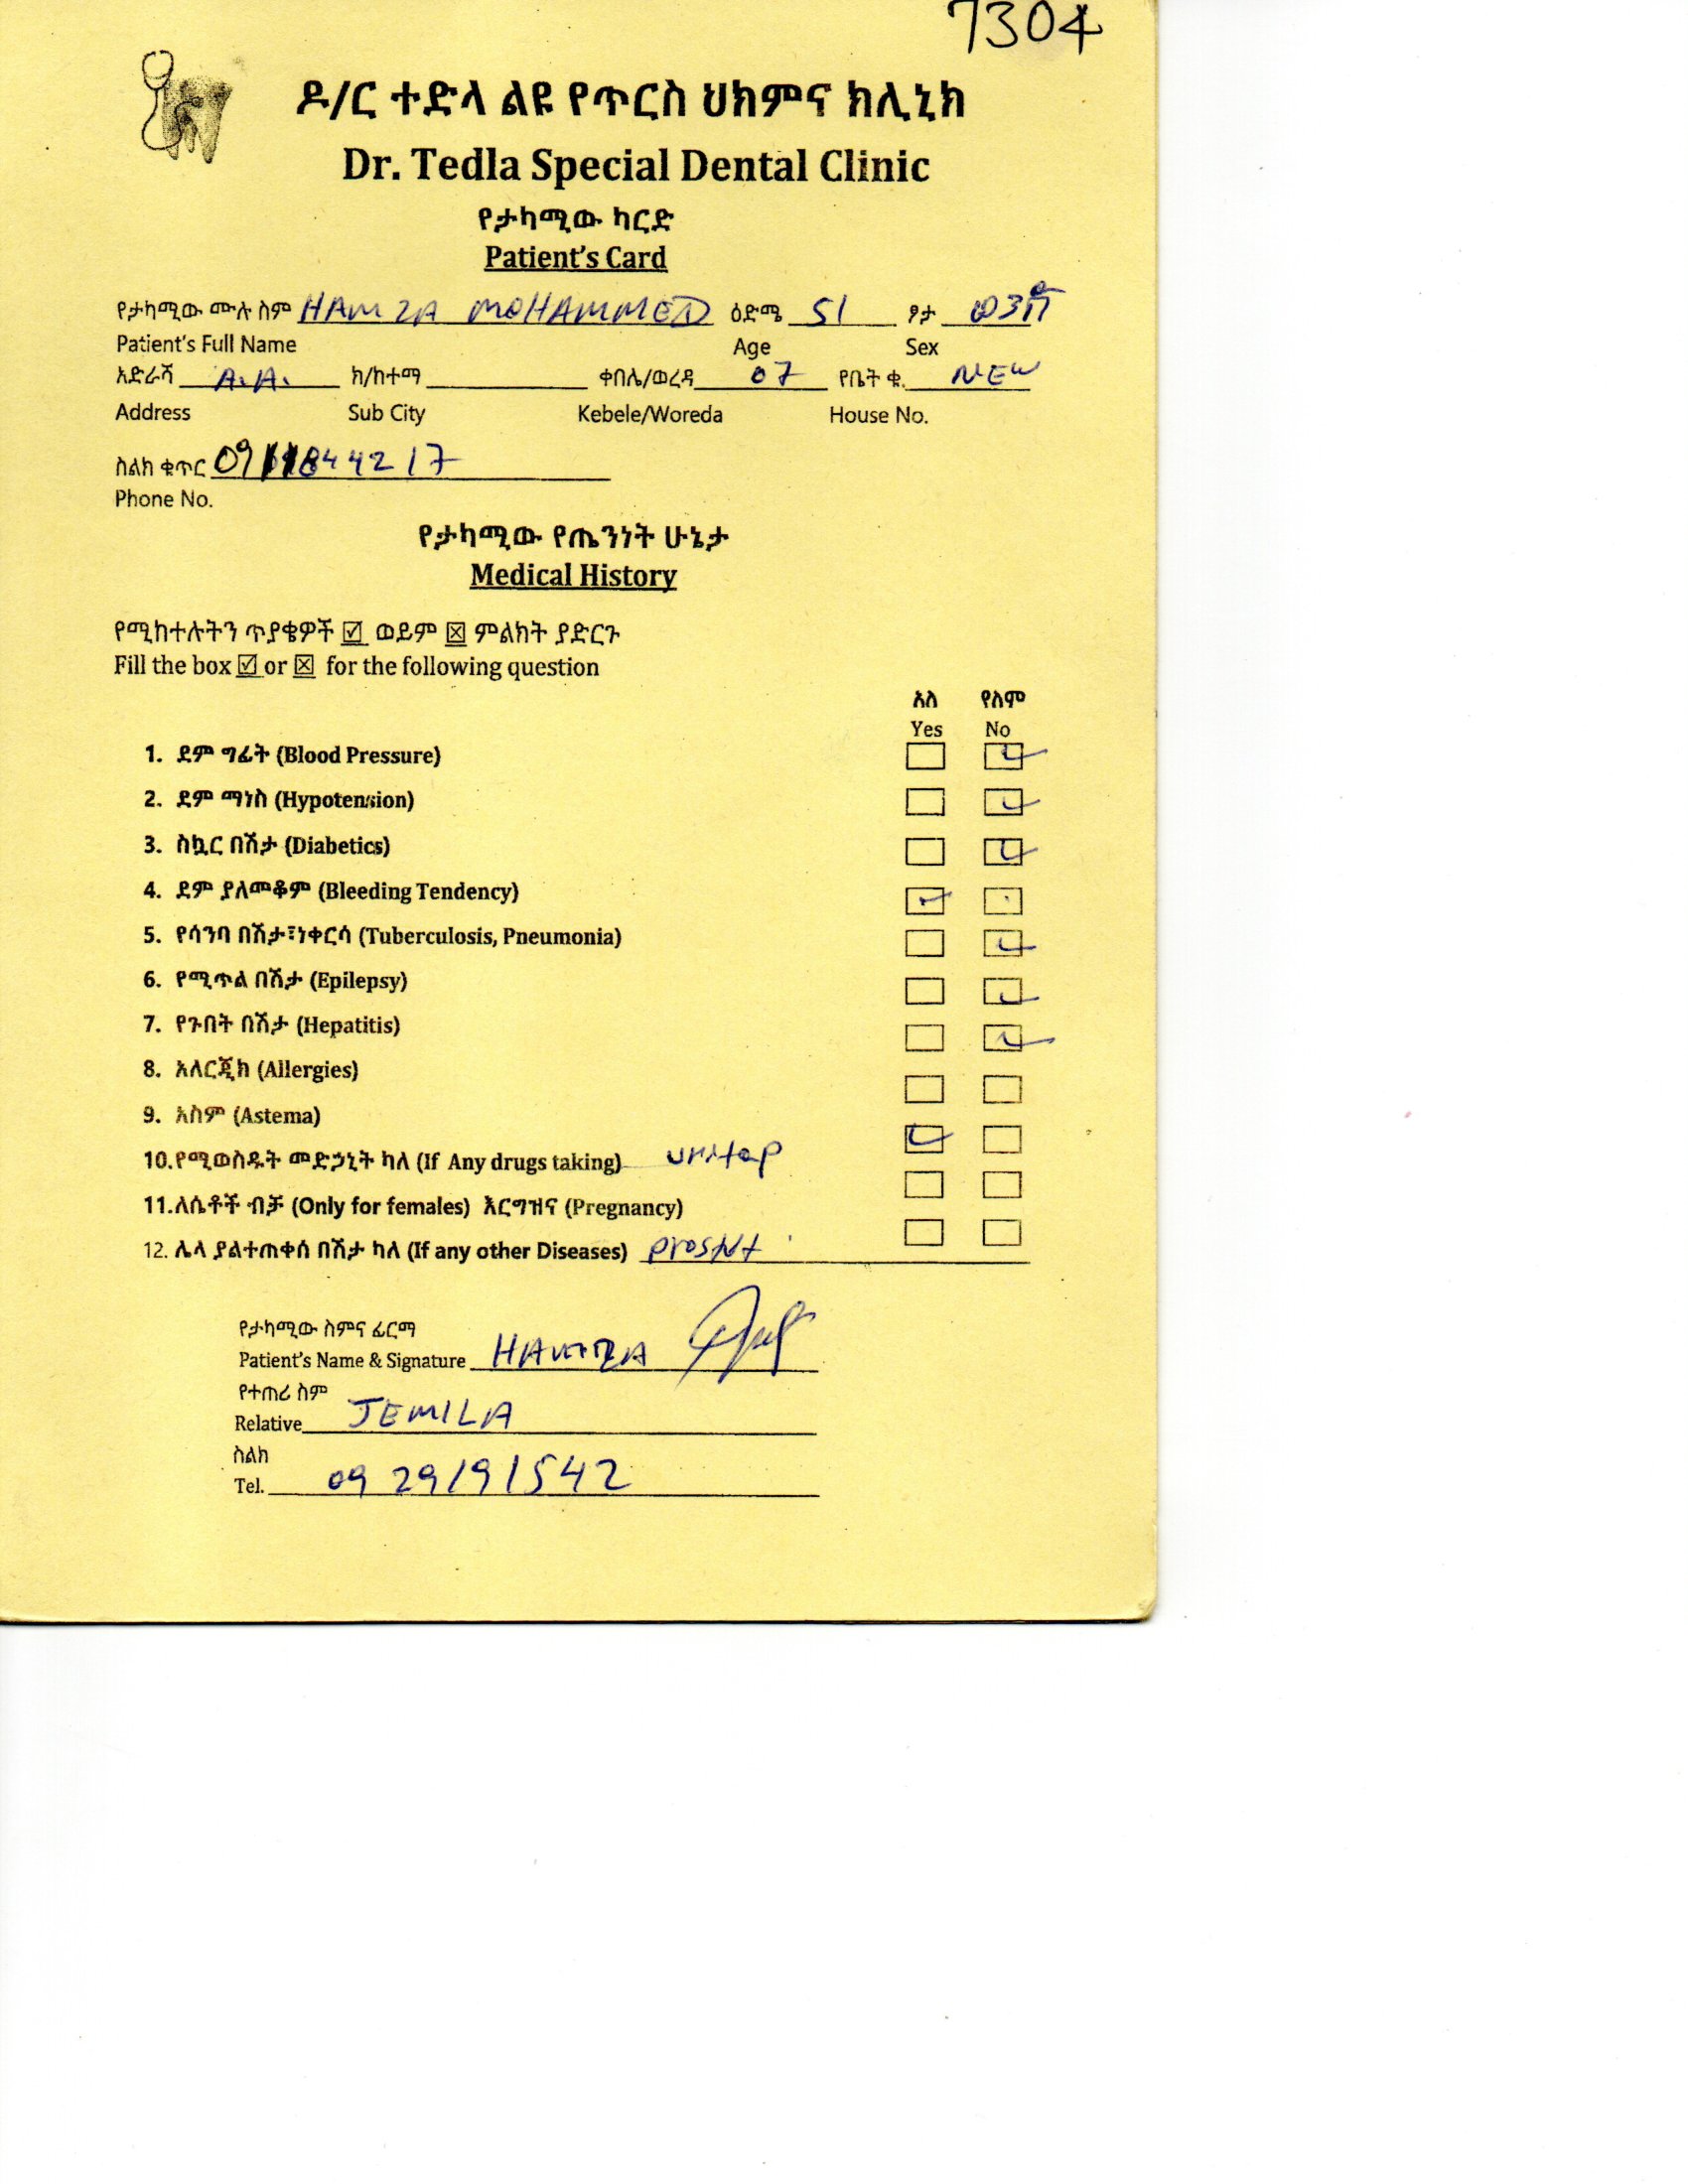 7304
ዶ/ር ተድላ ልዩ የጥርስ ህክምና ክሊኒክ
Dr. Tedla Special Dental Clinic
የታካሚው ካርድ
Patient's Card
የታካሚው ሙሉ ስም HAMZA MOHAMMED ዕድሜ 51 ፆታ ወንድ
Patient's Full Name Age Sex
አድራሻ A.A. ክ/ከተማ ቀበሌ/ወረዳ 07 የቤት ቁ. NEW
Address Sub City Kebele/Woreda House No.
ስልክ ቁጥር 0911844217
Phone No.
የታካሚው የጤንነት ሁኔታ
Medical History
የሚከተሉትን ጥያቄዎች ☑ ወይም ☒ ምልክት ያድርጉ
Fill the box ☑ or ☒ for the following question
አለ የለም
Yes No
1. ደም ግፊት (Blood Pressure)
2. ደም ማነስ (Hypotension)
3. ስኳር በሽታ (Diabetics)
4. ደም ያለመቆም (Bleeding Tendency)
5. የሳንባ በሽታ፣ነቀርሳ (Tuberculosis, Pneumonia)
6. የሚጥል በሽታ (Epilepsy)
7. የጉበት በሽታ (Hepatitis)
8. አለርጂክ (Allergies)
9. አስም (Astema)
10.የሚወስዱት መድኃኒት ካለ (If Any drugs taking) uritap
11.ለሴቶች ብቻ (Only for females) እርግዝና (Pregnancy)
12. ሌላ ያልተጠቀሰ በሽታ ካለ (If any other Diseases)
የታካሚው ስምና ፊርማ
Patient's Name & Signature HAMZA
የተጠሪ ስም
Relative JEMILA
ስልክ
Tel. 0929191542